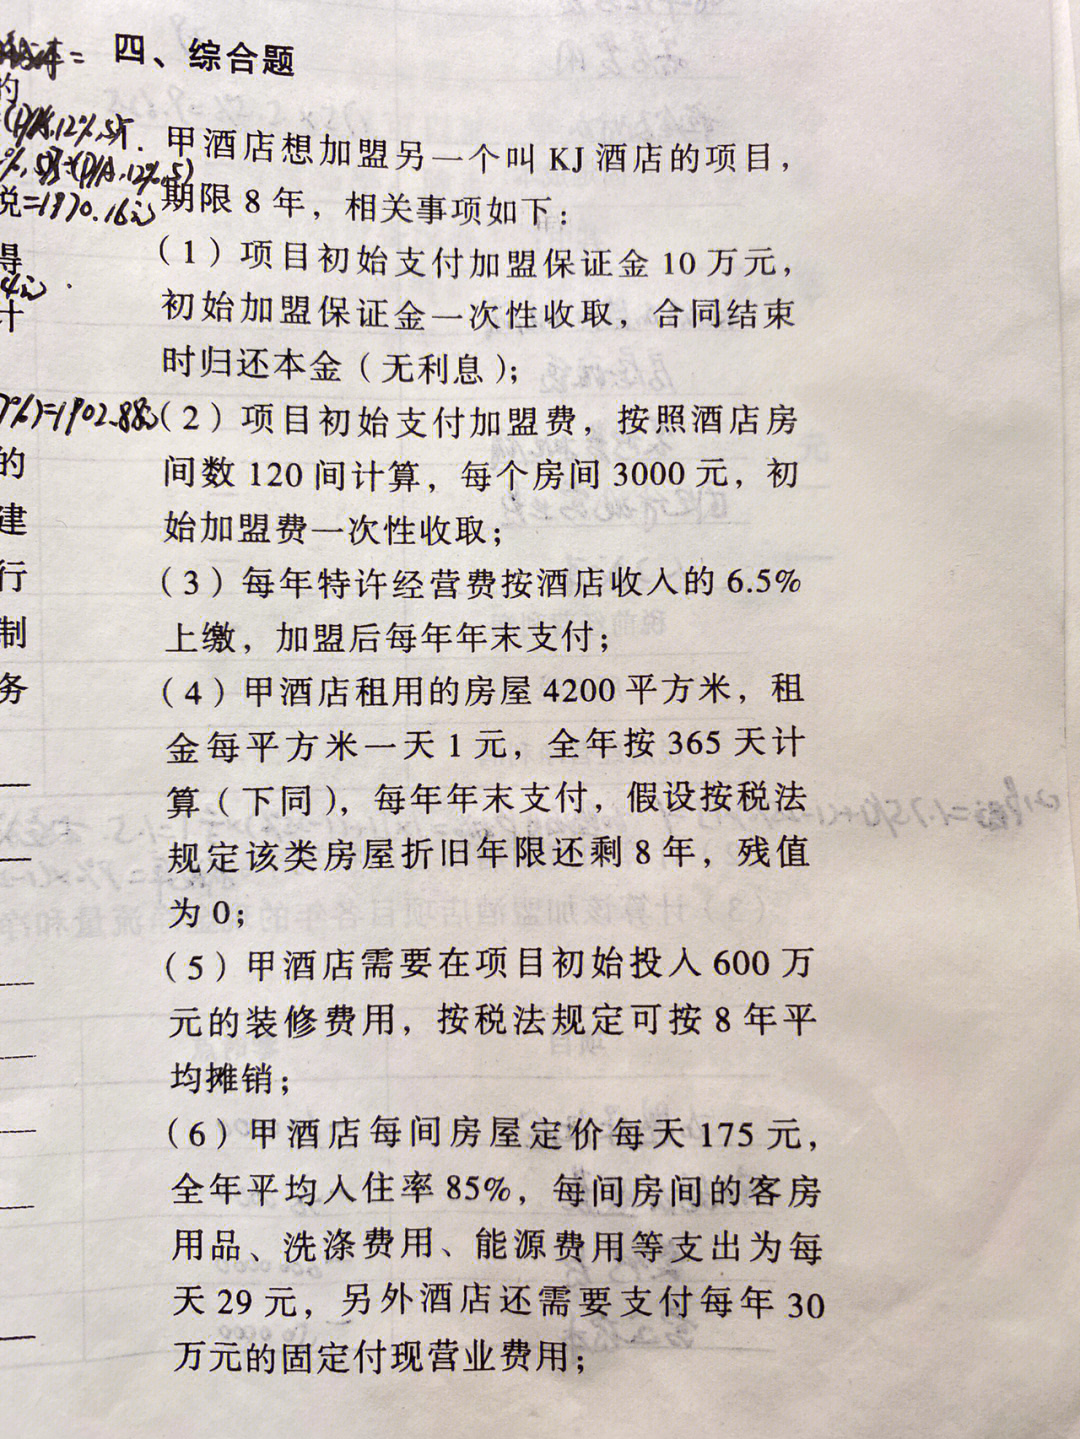 四、综合题
1. 甲酒店想加盟另一个叫 KJ 酒店的项目，
期限 8 年，相关事项如下：
（1）项目初始支付加盟保证金 10 万元，
初始加盟保证金一次性收取，合同结束
时归还本金（无利息）；
（2）项目初始支付加盟费，按照酒店房
间数 120 间计算，每个房间 3000 元，初
始加盟费一次性收取；
（3）每年特许经营费按酒店收入的 6.5%
上缴，加盟后每年年末支付；
（4）甲酒店租用的房屋 4200 平方米，租
金每平方米一天 1 元，全年按 365 天计
算（下同），每年年末支付，假设按税法
规定该类房屋折旧年限还剩 8 年，残值
为 0；
（5）甲酒店需要在项目初始投入 600 万
元的装修费用，按税法规定可按 8 年平
均摊销；
（6）甲酒店每间房屋定价每天 175 元，
全年平均入住率 85%，每间房间的客房
用品、洗涤费用、能源费用等支出为每
天 29 元，另外酒店还需要支付每年 30
万元的固定付现营业费用；
的
(P/A,12%,5)
%,5)]÷(P/A,12%,5)
税=1970.16
得
计
7%)=1902.88
的
建
行
制
务